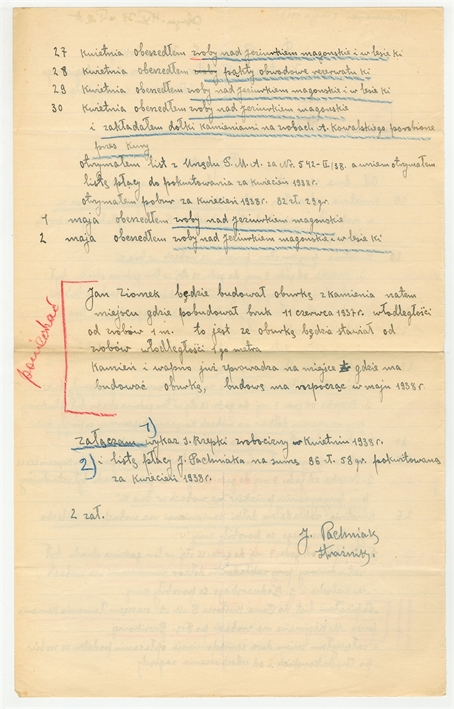 27 kwietnia obeszedłem żroby nad jeziurkiem magońskie i w lesie ki
28 kwietnia obeszedłem żroby pąkty obwodowe rezerwatu ki
29 kwietnia obeszedłem zroby nad jeziurkiem magońskie i w lesie ki
30 kwietnia obeszedłem zroby nad jeziurkiem magońskie
i zakładałem dołki kamieniami na zrobach A. Kowalskiego porobione
pres Kury
otrzymałem list z Urzędu P.M.A. za Nr. 542-II/38. a wniem otrzymałem
listę płacy do pokwitowania za kwiecień 1938 r.
otrzymałem pobur za kwiecień 1938 r. 82 zł. 29 gr.
1 maja obeszedłem zroby nad jeziurkiem magońskie
2 maja obeszedłem zroby nad jeziurkiem magońskie i w lesie ki
poniechać
Jan Ziomek będzie budował oburkę z kamienia natem
miejscu gdzie pobudował bruk 11 czerwca 1937 r. włodległości
od zrobów 1 m. to jest ze oburkę będzie stawiał od
zrobów włodległości 1 go metra
Kamień i wapno już sprowadza na miejsce gdzie ma
budować oburkę, budowę ma rozpocząc w maju 1938 r.
załączam 1) wykaz J. Rzepki zrobocizny w Kwietniu 1938 r.
2) i listę płacy J. Pachniaka na sumę 86 zł. 58 gr. pokwitowaną
za Kwiecień 1938 r.
2 zał.
J. Pachniak
strażnik